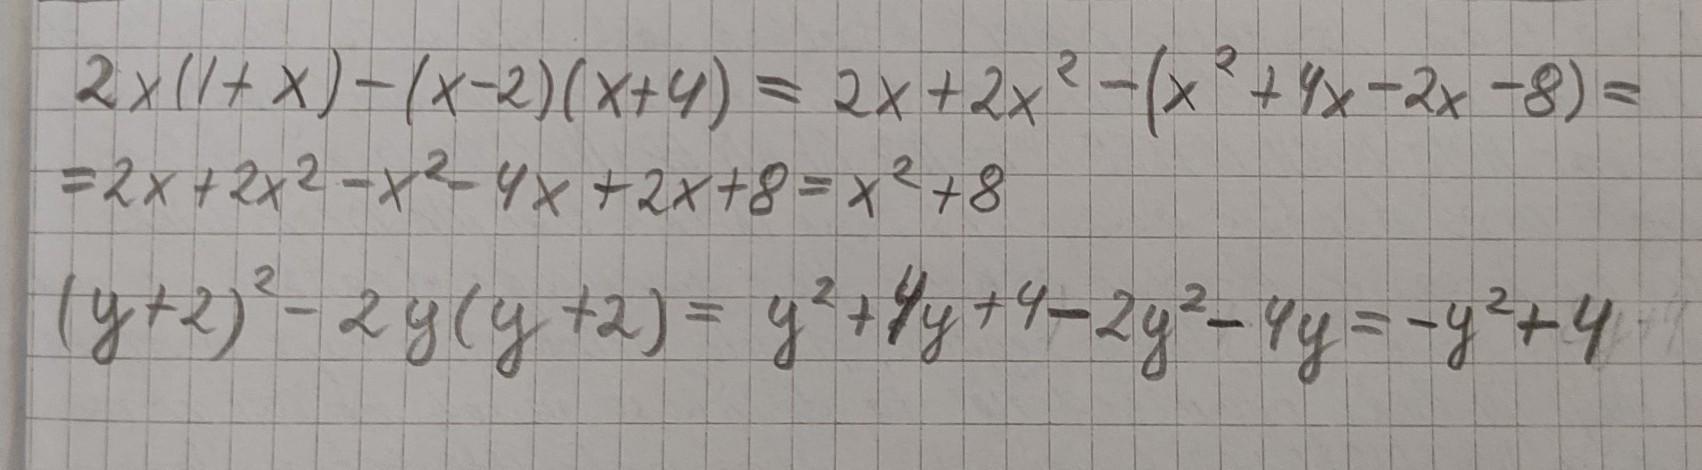 2x(1+x)-(x-2)(x+4) = 2x+2x²-(x²+4x-2x-8)=
=2x+2x²-x²-4x+2x+8=x²+8
(y+2)²-2y(y+2)= y²+4y+4-2y²-4y=-y²+4